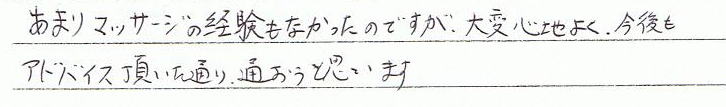 あまりマッサージの経験もなかったのですが、大変心地よく、今後も
アドバイス頂いた通り、通おうと思います